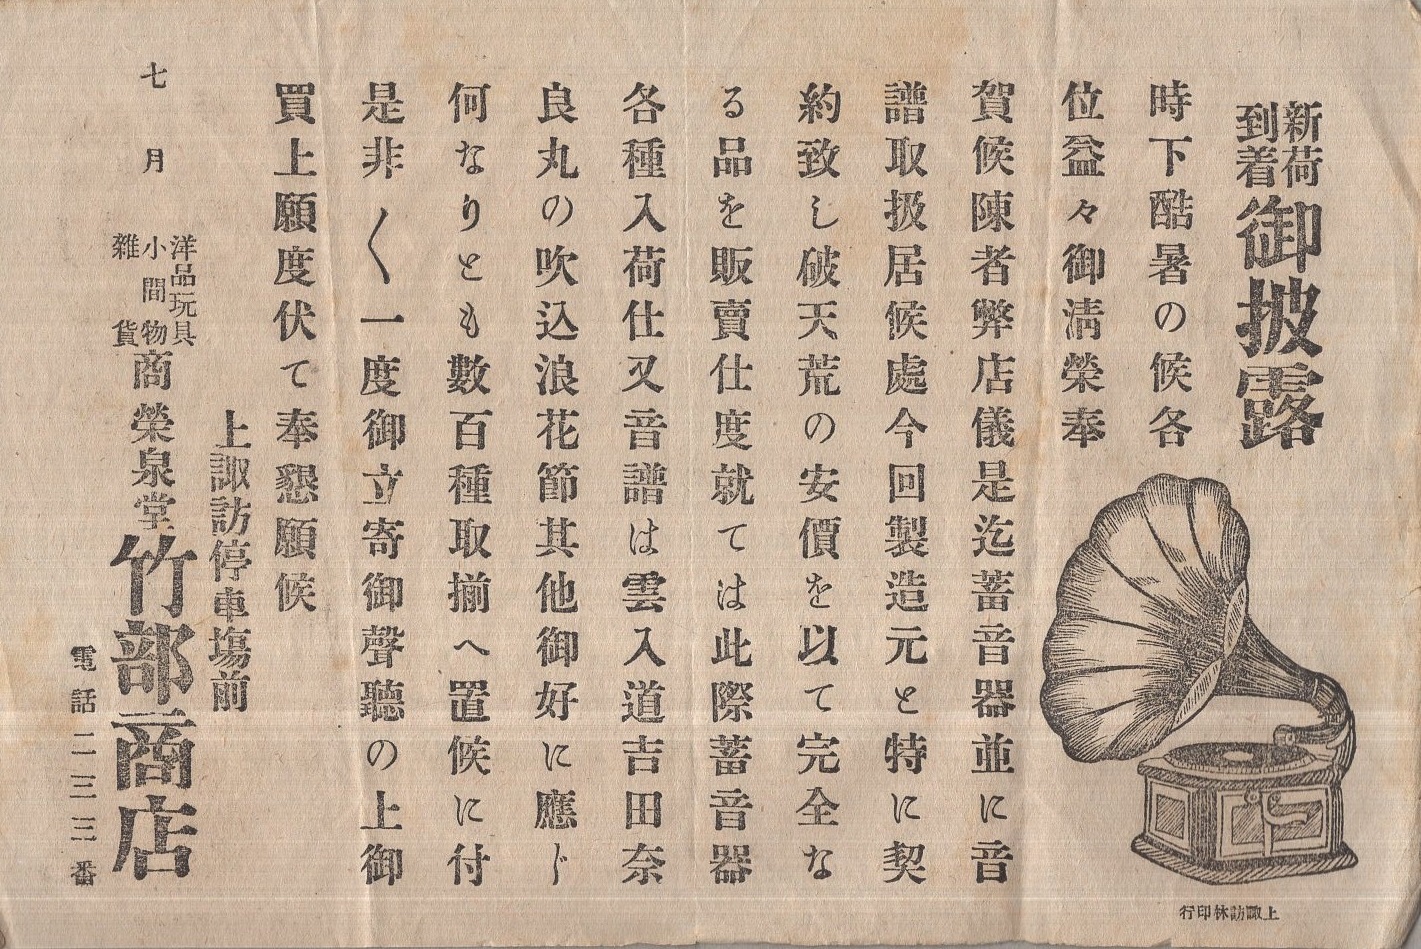 新荷
到着
御披露
時下酷暑の候各
位益々御淸榮奉
賀候陳者弊店儀是迄蓄音器並に音
譜取扱居候處今回製造元と特に契
約致し破天荒の安價を以て完全な
る品を販賣仕度就ては此際蓄音器
各種入荷仕又音譜は雲入道吉田奈
良丸の吹込浪花節其他御好に應じ
何なりとも數百種取揃へ置候に付
是非〱一度御立寄御聲聽の上御
買上願度伏て奉懇願候
上諏訪停車塲前
七月
洋品玩具
小間物
雜貨
商 榮泉堂 竹部商店
電話二三三番
上諏訪林印行